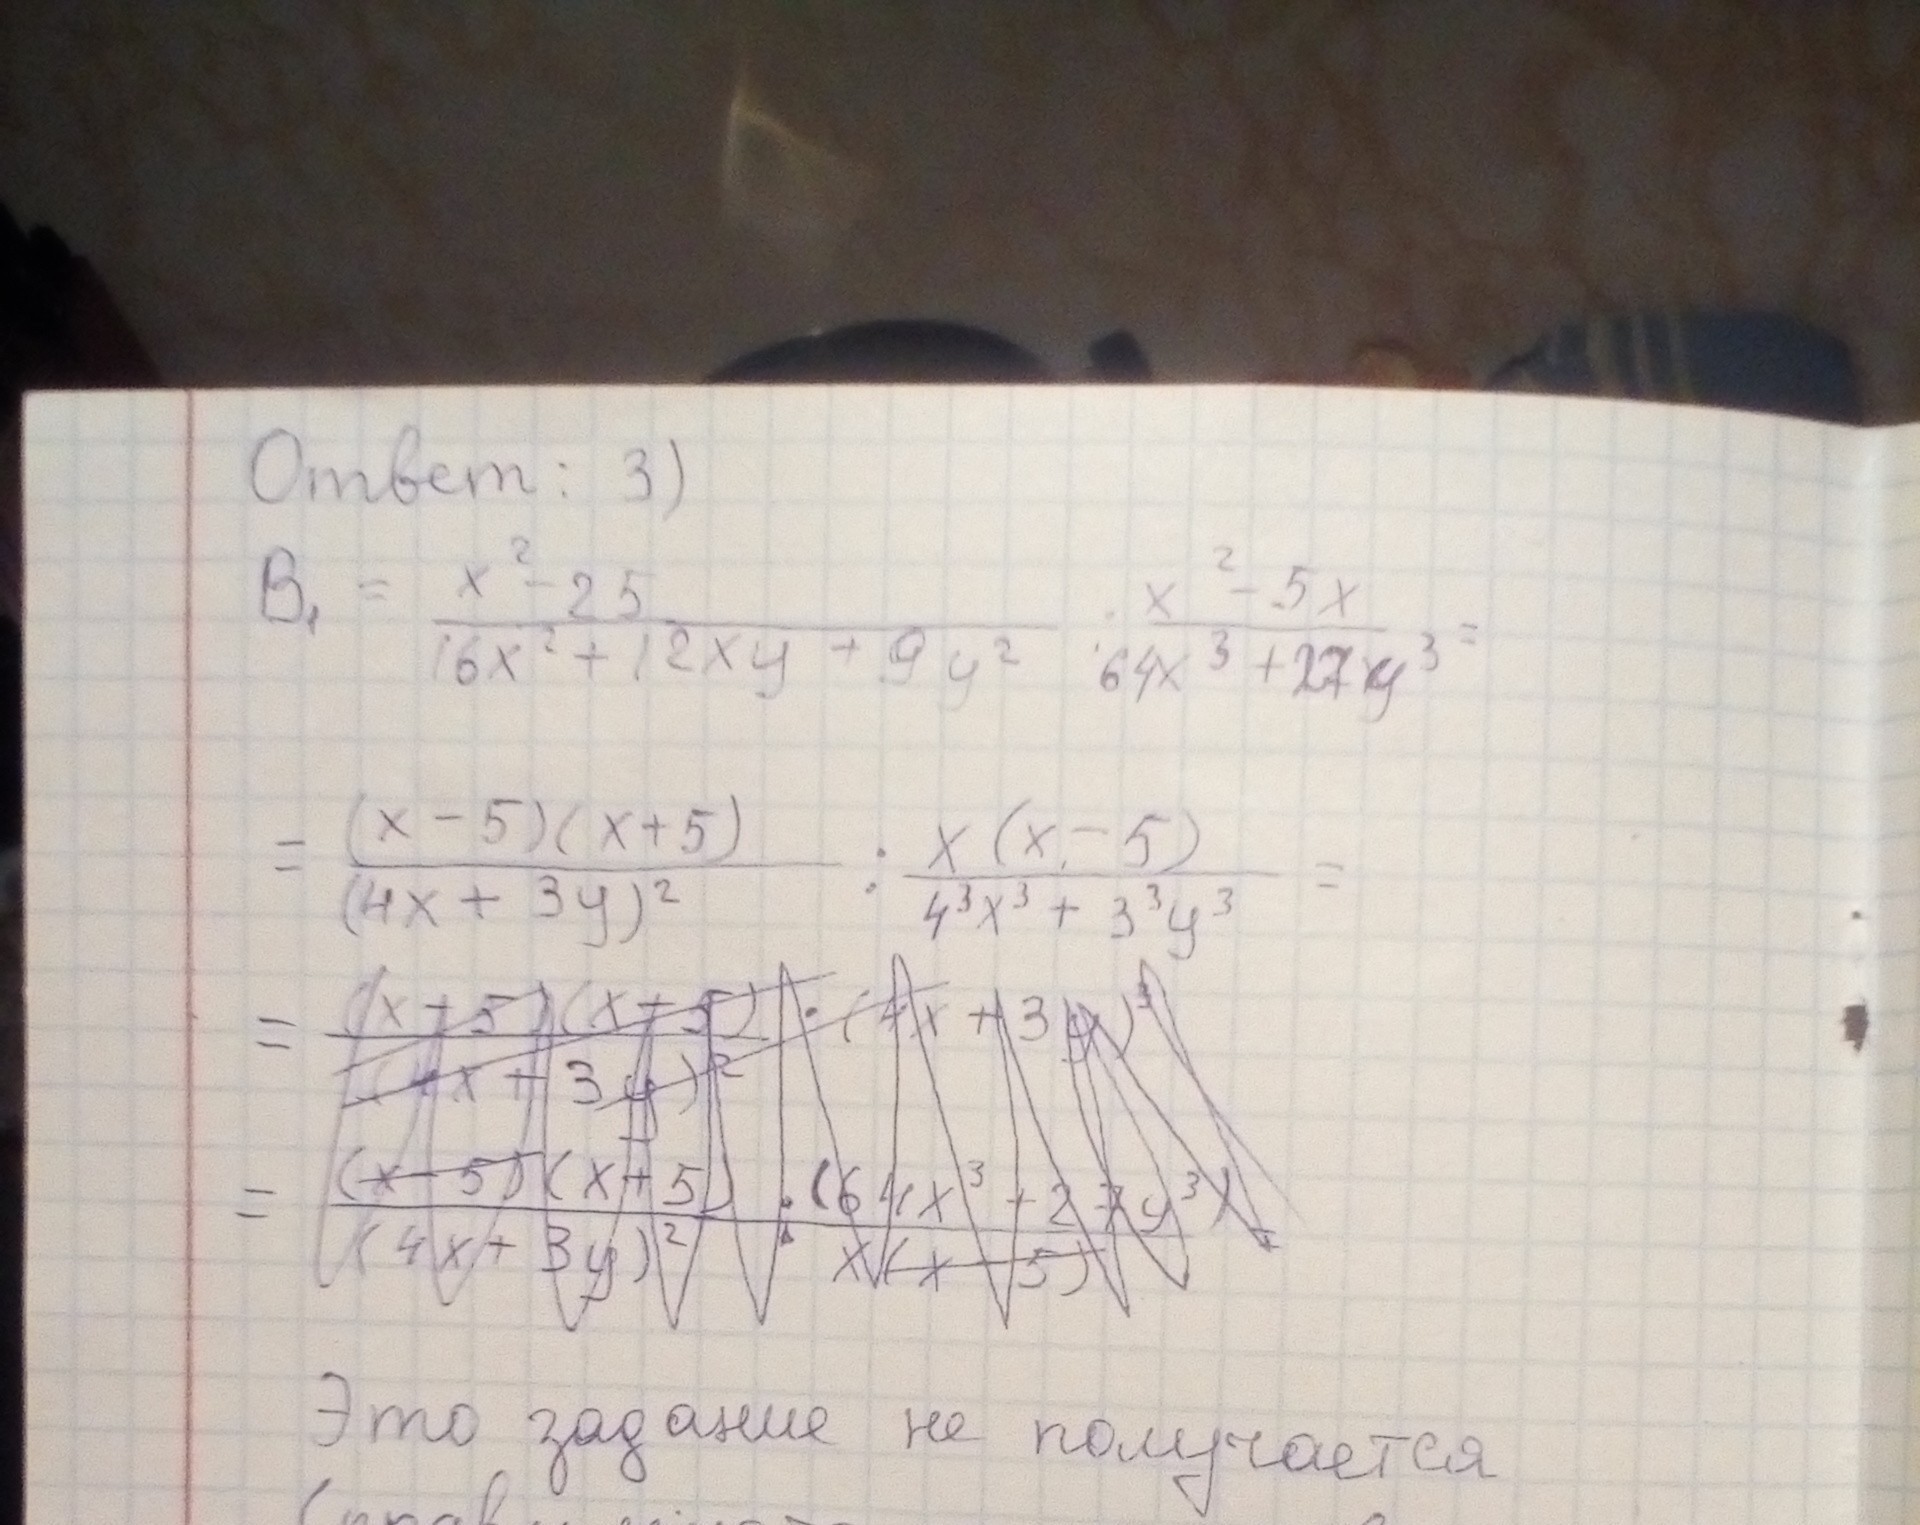 Ответ: 3)
B₁ = (x² - 25)/(16x² + 12xy + 9y²) : (x² - 5x)/(64x³ + 27y³) =
= ((x - 5)(x + 5))/((4x + 3y)²) : (x(x - 5))/(4³x³ + 3³y³) =
= ((x + 5)(x + 5) · (4x + 3y)³)/((4x + 3y)²)
= ((x - 5)(x + 5) · (64x³ + 27y³))/((4x + 3y)² · x(x - 5))
Это задание не получается